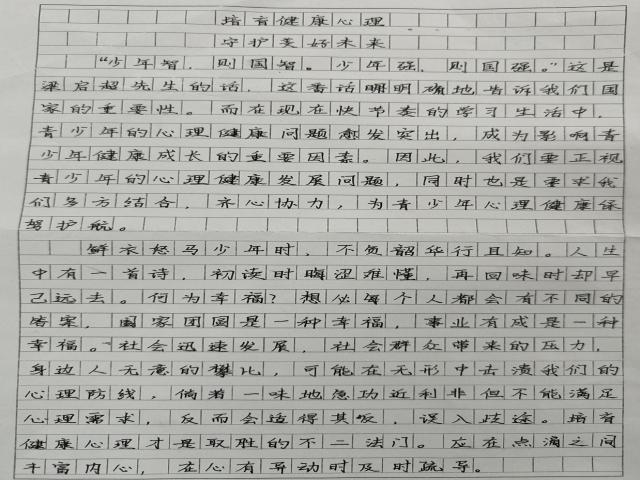 培育健康心理
守护美好未来
“少年智，则国智。少年强，则国强。”这是
梁启超先生的话，这番话明明确地告诉我们国
家的重要性。而在现在快节奏的学习生活中，
青少年的心理健康问题愈发突出，成为影响青
少年健康成长的重要因素。因此，我们要正视
青少年的心理健康发展问题，同时也是要求我
们多方结合，齐心协力，为青少年心理健康保
驾护航。
鲜衣怒马少年时，不负韶华行且知。人生
中有一首诗，初读时晦涩难懂，再回味时却早
已远去。何为幸福？想必每个人都会有不同的
答案，国家团圆是一种幸福，事业有成是一种
幸福。社会迅速发展，社会群众带来的压力，
身边人无意的攀比，可能在无形中击溃我们的
心理防线，倘若一味地急功近利非但不能满足
心理需求，反而会适得其反，误入歧途。培育
健康心理才是取胜的不二法门。应在点滴之间
丰富内心，在心有异动时及时疏导。